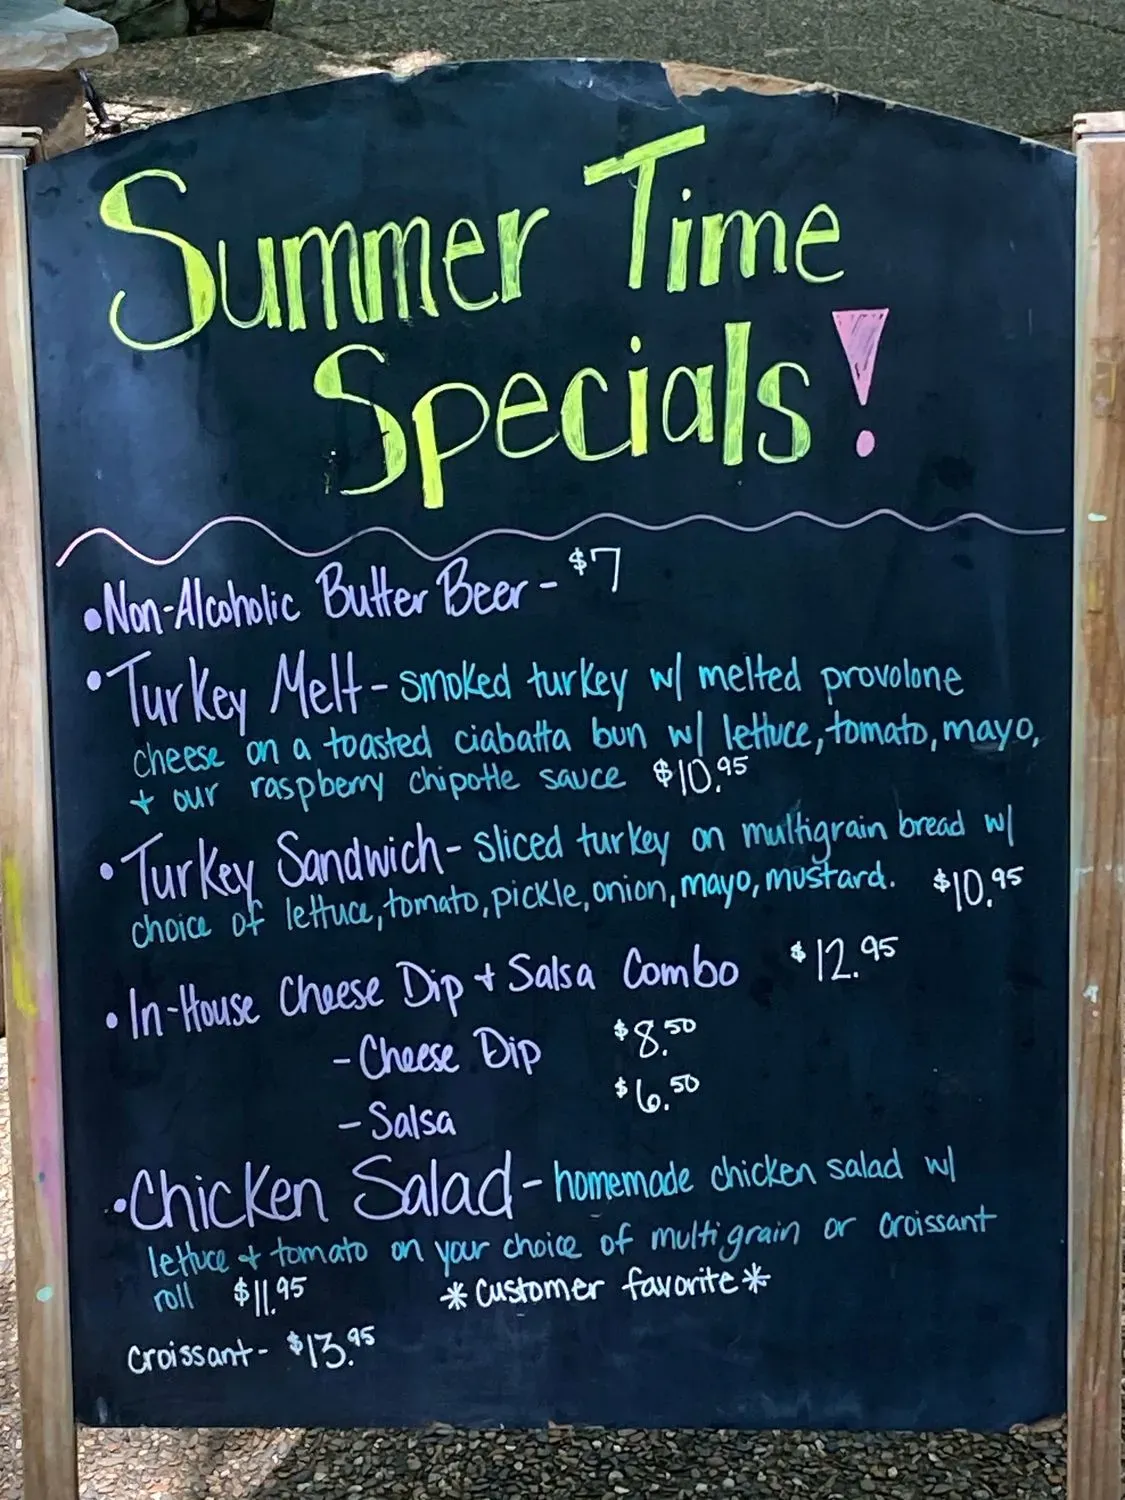 Summer Time
Specials!
• Non-Alcoholic Butter Beer - $7
• Turkey Melt - smoked turkey w/ melted provolone
cheese on a toasted ciabatta bun w/ lettuce, tomato, mayo,
+ our raspberry chipotle sauce $10.95
• Turkey Sandwich - sliced turkey on multigrain bread w/
choice of lettuce, tomato, pickle, onion, mayo, mustard. $10.95
• In-House Cheese Dip + Salsa Combo $12.95
- Cheese Dip $8.50
- Salsa $6.50
• Chicken Salad - homemade chicken salad w/
lettuce + tomato on your choice of multigrain or croissant
roll $11.95 *Customer favorite*
croissant - $13.95